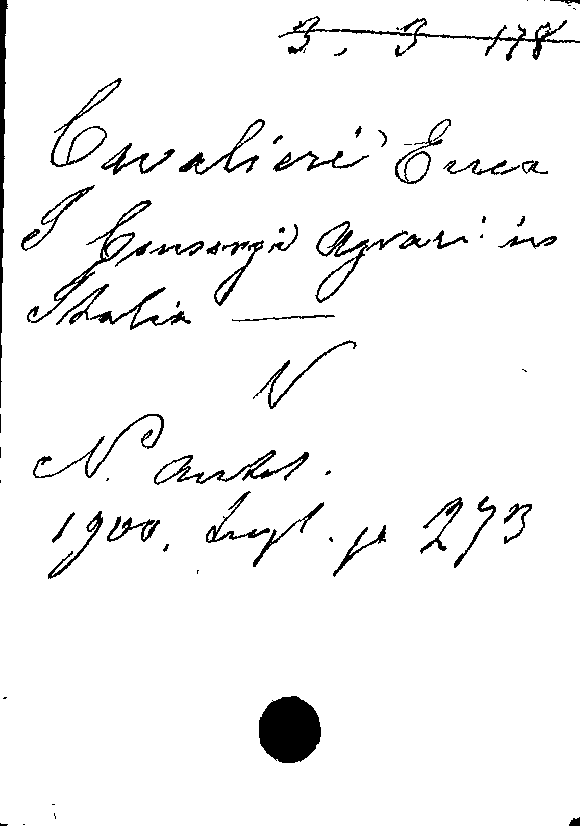 3. 3 178
Cavalieri Enea
I Consorzi Agrari in
Italia
N
N. Antol.
1900. Lugl. p 273